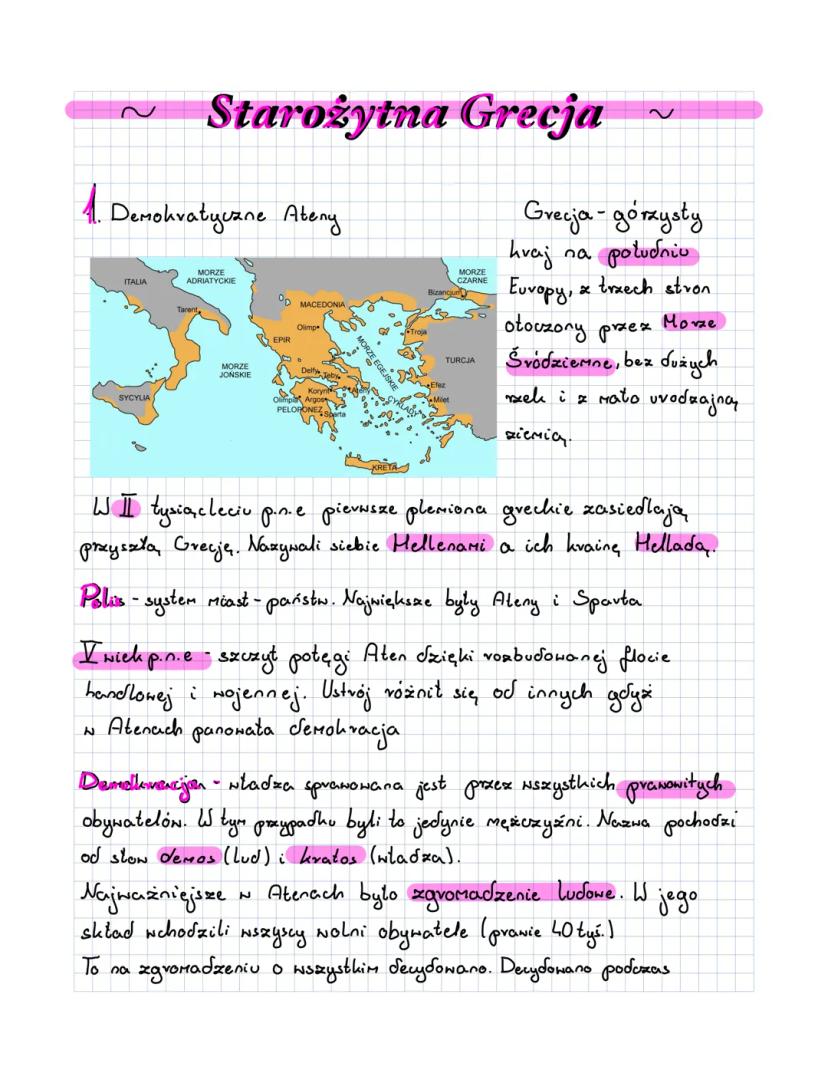 ~ Starożytna Grecja ~
1. Demokratyczne Ateny
Grecja - górzysty
kraj na południu
Europy, z trzech stron
otoczony przez Morze
Śródziemne, bez dużych
rzek i z mało urodzajną
ziemią.
ITALIA
MORZE
ADRIATYCKIE
MORZE
CZARNE
Bizancjum
Tarent
MACEDONIA
Olimp
Troja
EPIR
MORZE EGEJSKIE
TURCJA
MORZE
JOŃSKIE
Delfy
Teby
Efez
Korynt
Ateny
SYCYLIA
Olimpia
Argos
CYKLADY
Milet
PELOPONEZ
Sparta
KRETA
W II tysiącleciu p.n.e pierwsze plemiona greckie zasiedlają
przyszłą Grecję. Nazywali siebie Hellenami a ich krainę Helladą.
Polis - system miast-państw. Największe były Ateny i Sparta
V wiek p.n.e - szczyt potęgi Aten dzięki rozbudowanej flocie
handlowej i wojennej. Ustrój różnił się od innych gdyż
w Atenach panowała demokracja
Demokracja - władza sprawowana jest przez wszystkich prawowitych
obywatelów. W tym przypadku byli to jedynie mężczyźni. Nazwa pochodzi
od słow demos (lud) i kratos (władza).
Najważniejsze w Atenach było zgromadzenie ludowe. W jego
skład wchodzili wszyscy wolni obywatele (prawie 40 tyś.)
To na zgromadzeniu o wszystkim decydowano. Decydowano podczas